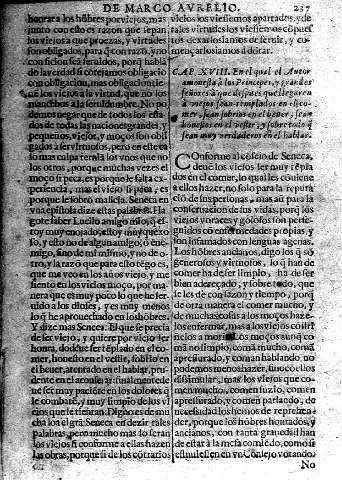 DE MARCO AVRELIO. 237
honrar a los hõbres por viejos, mas
junto con esto es razon que sean
los viejos a que proezas, y virtudes
son obligados, para q̃ con razõ, y no
con ficion sea seruidos, porq̃ hablã
do la verdad si cotejamos obligació
con obligacion, mas obligacion tie
ne los viejos a la virtud, que no los
mancebos a la seruidumbre. No po
demos negar que de todos los esta
dos de todas las naciones grandes, y
pequeños, viejos, y moços son obli
gados a ser virtuosos, pero en este ca
so mas culpa ternã los vnos que no
los otros, porque muchas vezes el
moço si peca, es porque le falta ex
periencia, mas el viejo si peca, es
porque le sobró malicia. Seneca en
vna epistola dize estas palabras. Ha
gote saber Lucilo amigo mio, q̃ es
toy muy enojado, estoy muy quexo
so, y esto no de algun amigo, ó ene-
migo, sino de mi mismo, y no de o-
tro, y la razó que para ello tẽgo es,
que me veo en los años viejo, y me
siento en los vicios moço, por ma-
nera que es muy poco lo que he ser
uido a los dioses, y es muy menos
lo q̃ he aprouechado en los hõbres.
Y dize mas Seneca. El que se precia
de ser viejo, y quiere por viejo ser
honra, deue ser tẽplado en el co-
mer, honesto en el vestir, sobrio en
el beuer, atentado en el hablar, pru
dente en el consejar, finalmente de
ue ser muy paciẽte en los dolores q̃
le combatẽ, y muy limpio de los vi
cios que le tientan. Digno es de mu
cha loa el grã Seneca en dezir tales
palabras, pero mucho mas lo seran
los viejos si conforme a ellas hazen
las obras, porque si de los cõtrarios
vicios los viessemos apartados, y da
dos a virtudes los viejos nos cõpues
tos dexariamos de seruir, y co-
mençariamos a adorar.
CAP. XVIII. En el qual el Autor
amonesta a los Principes, y grandes
señores a que despues que llegaren
a viejos sean templados en el co-
mer, sean sobrios en el beuer, sean
honestos en el vestir, y sobre todo q̃
sean muy verdaderos en el hablar.
Conforme al cõsejo de Seneca,
deuẽ los viejos ser muy tẽpla
dos en el comer, lo qual les conuiene
a ellos hazer, no solo para la reputa
ciõ de sus personas, mas aun para la
conseruaciõ de sus vidas, porq̃ los
viejos voraces y golosos son perse-
guidos con enfermedades propias, y
son infamados con lenguas agenas.
Los hõbres ancianos, digo los q̃ sõ
generosos y virtuosos, lo q̃ han de
comer ha de ser limpio, ha de ser
bien adereçado, y sobre todo, que
se les de con razon y tiempo, porq̃
de otra manera el comer mucho, y
de muchas cosas a los moços haze-
los enfermar, mas a los viejos cõstri
ñelos a morir. Los moços aunq̃ co-
mã no limpio, coman mucho, comã
apressurado, y coman hablando, no
podemos menos hazer, sino cõ ellos
dissimular, mas los viejos que co-
men mucho, comen suzio, comen
apressurado, y comen parlando, de
necessidad los hemos de reprehen-
der, porque los hõbres honrados, y
ancianos, con tanta grauedad han
de estar a la mesa comiẽdo, como si
estuuiessen en vn Consejo votando.
No